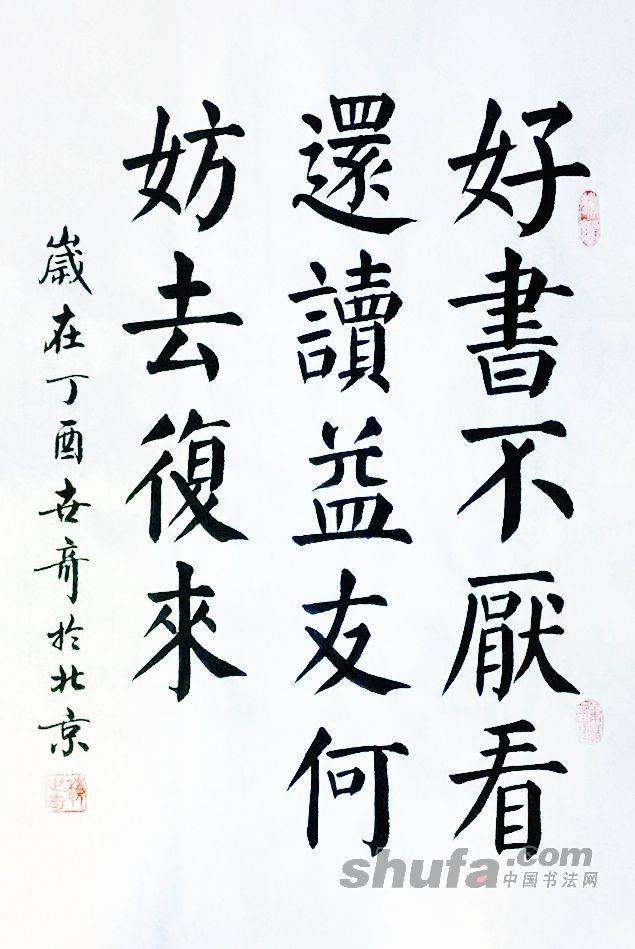 好書不厭看
還讀益友何
妨去復來
歲在丁酉世奇於北京
shufa.com
中国书法网